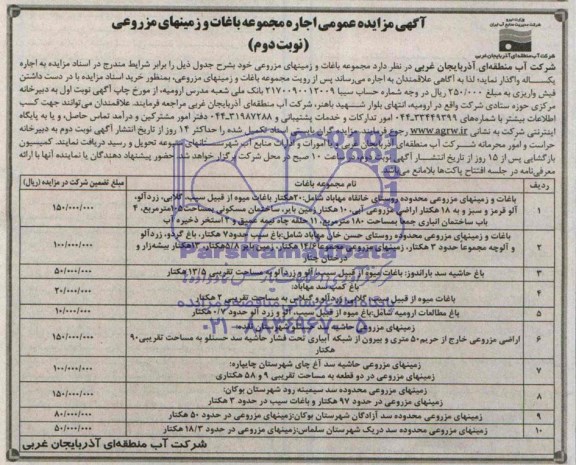 آگهی مزایده عمومی اجاره مجموعه باغات و زمینهای مزروعی
(نوبت دوم)
وزارت نیرو
شرکت مدیریت منابع آب ایران
شرکت آب منطقه‌ای آذربایجان غربی
شرکت آب منطقه‌ای آذربایجان غربی در نظر دارد مجموعه باغات و زمینهای مزروعی خود بشرح جدول ذیل را برابر شرایط مندرج در اسناد مزایده به اجاره
یکساله واگذار نماید؛ لذا به آگاهی علاقمندان به اجاره می‌رساند پس از رویت مجموعه باغات و زمینهای مزروعی، بمنظور خرید اسناد مزایده با در دست داشتن
فیش واریزی به مبلغ ۲۵۰/۰۰۰ ریال در وجه شماره حساب سیبا ۲۱۷۰۰۹۰۰۱۲۰۰۹ بانک ملی شعبه مدرس ارومیه، از مورخ چاپ آگهی نوبت اول به دبیرخانه
مرکزی حوزه ستادی شرکت واقع در ارومیه، انتهای بلوار شهید باهنر، شرکت آب منطقه‌ای آذربایجان غربی مراجعه فرمایند. علاقمندان می‌توانند جهت کسب
اطلاعات بیشتر با شماره‌های ۰۴۴-۳۳۴۴۹۳۹۹ امور تدارکات و خدمات پشتیبانی و ۰۴۴-۳۱۹۸۷۲۸۸ دفتر امور مشترکین و درآمد تماس حاصل، و یا به پایگاه
اینترنتی شرکت به نشانی www.agrw.ir رجوع فرمایند. مزایده گران بایستی اسناد تکمیل شده را حداکثر ۱۴ روز از تاریخ انتشار آگهی نوبت دوم به دبیرخانه
حراست و امور محرمانه شرکت آب منطقه‌ای آذربایجان غربی و یا امورات و ادارات منابع آب شهرستانهای مجموعه تحویل و رسید دریافت نمایند. کمیسیون
بازگشایی پس از ۱۵ روز از تاریخ انتشار آگهی نوبت دوم ساعت ۱۰ صبح در محل شرکت برگزار خواهد شد. حضور پیشنهاد دهندگان یا نماینده آنها با ارائه
معرفی‌نامه در جلسه افتتاح پاکت‌ها بلامانع می‌باشد.
ردیف نام مجموعه باغات مبلغ تضمین شرکت در مزایده (ریال)
۱ باغات و زمینهای مزروعی محدوده روستای خانقاه مهاباد شامل:۲۰هکتار باغات میوه از قبیل سیب، گلابی، زردآلو،
آلو قرمز و سبز و به ۱۸ هکتار اراضی مزروعی آبی، ۱۰ هکتار زمین بایر، ساختمان مسکونی بمساحت۱۰۵مترمربع، ۴
باب ساختمان انباری جمعاً بمساحت ۱۸۰ مترمربع، ۱۱ حلقه چاه نیمه عمیق و ۲ استخر ذخیره آب ۱۵۰/۰۰۰/۰۰۰
۲ باغات و زمینهای مزروعی محدوده روستای حسن خان مهاباد شامل:باغ سیب حدود۷ هکتار، باغ گردو، زردآلو
و آلوچه مجموعا حدود ۳ هکتار، زمینهای مزروعی مجموعا۱۴/۶ هکتار، زمین بایر ۵/۸هکتار، ۱۳هکتار بیشه‌زار و
درختان چنار ۱۰۰/۰۰۰/۰۰۰
۳ باغ حاشیه سد باراندوز: باغات میوه از قبیل سیب، آلو و زردآلو به مساحت تقریبی ۱۳/۵ هکتار ۵۰/۰۰۰/۰۰۰
۴ باغ کمپ سد مهاباد:
باغات میوه از قبیل سیب، گلابی، زردآلو و گیلاس به مساحت تقریبی ۲ هکتار ۲۰/۰۰۰/۰۰۰
۵ باغ مطالعات ارومیه شامل:باغ میوه از قبیل سیب، آلو و زرد آلو حدود ۰/۷ هکتار ۱۰/۰۰۰/۰۰۰
۶ زمینهای مزروعی حاشیه سد حسنلو شهرستان نقده:
اراضی مزروعی خارج از حریم۵۰ متری و بیرون از شبکه آبیاری تحت فشار حاشیه سد حسنلو به مساحت تقریبی۹۰
هکتار ۱۵۰/۰۰۰/۰۰۰
۷ زمینهای مزروعی حاشیه سد آغ چای شهرستان چایپاره:
زمینهای مزروعی در دو قطعه به مساحت تقریبی ۹ و ۵۸ هکتاری ۱۰۰/۰۰۰/۰۰۰
۸ زمینهای مزروعی محدوده سد سیمینه رود شهرستان بوکان:
زمینهای مزروعی در حدود ۹۷ هکتار و باغات سیب در حدود ۳ هکتار ۱۵۰/۰۰۰/۰۰۰
۹ زمینهای مزروعی محدوده سد آزادگان شهرستان بوکان:زمینهای مزروعی در حدود ۵۰ هکتار ۸۰/۰۰۰/۰۰۰
۱۰ زمینهای مزروعی محدوده سد دریک شهرستان سلماس:زمینهای مزروعی در حدود ۱۸/۳ هکتار ۵۰/۰۰۰/۰۰۰
شرکت آب منطقه‌ای آذربایجان غربی
ParsNamadData
۰۲۱-۸۸۳۴۹۶۷۰-۵